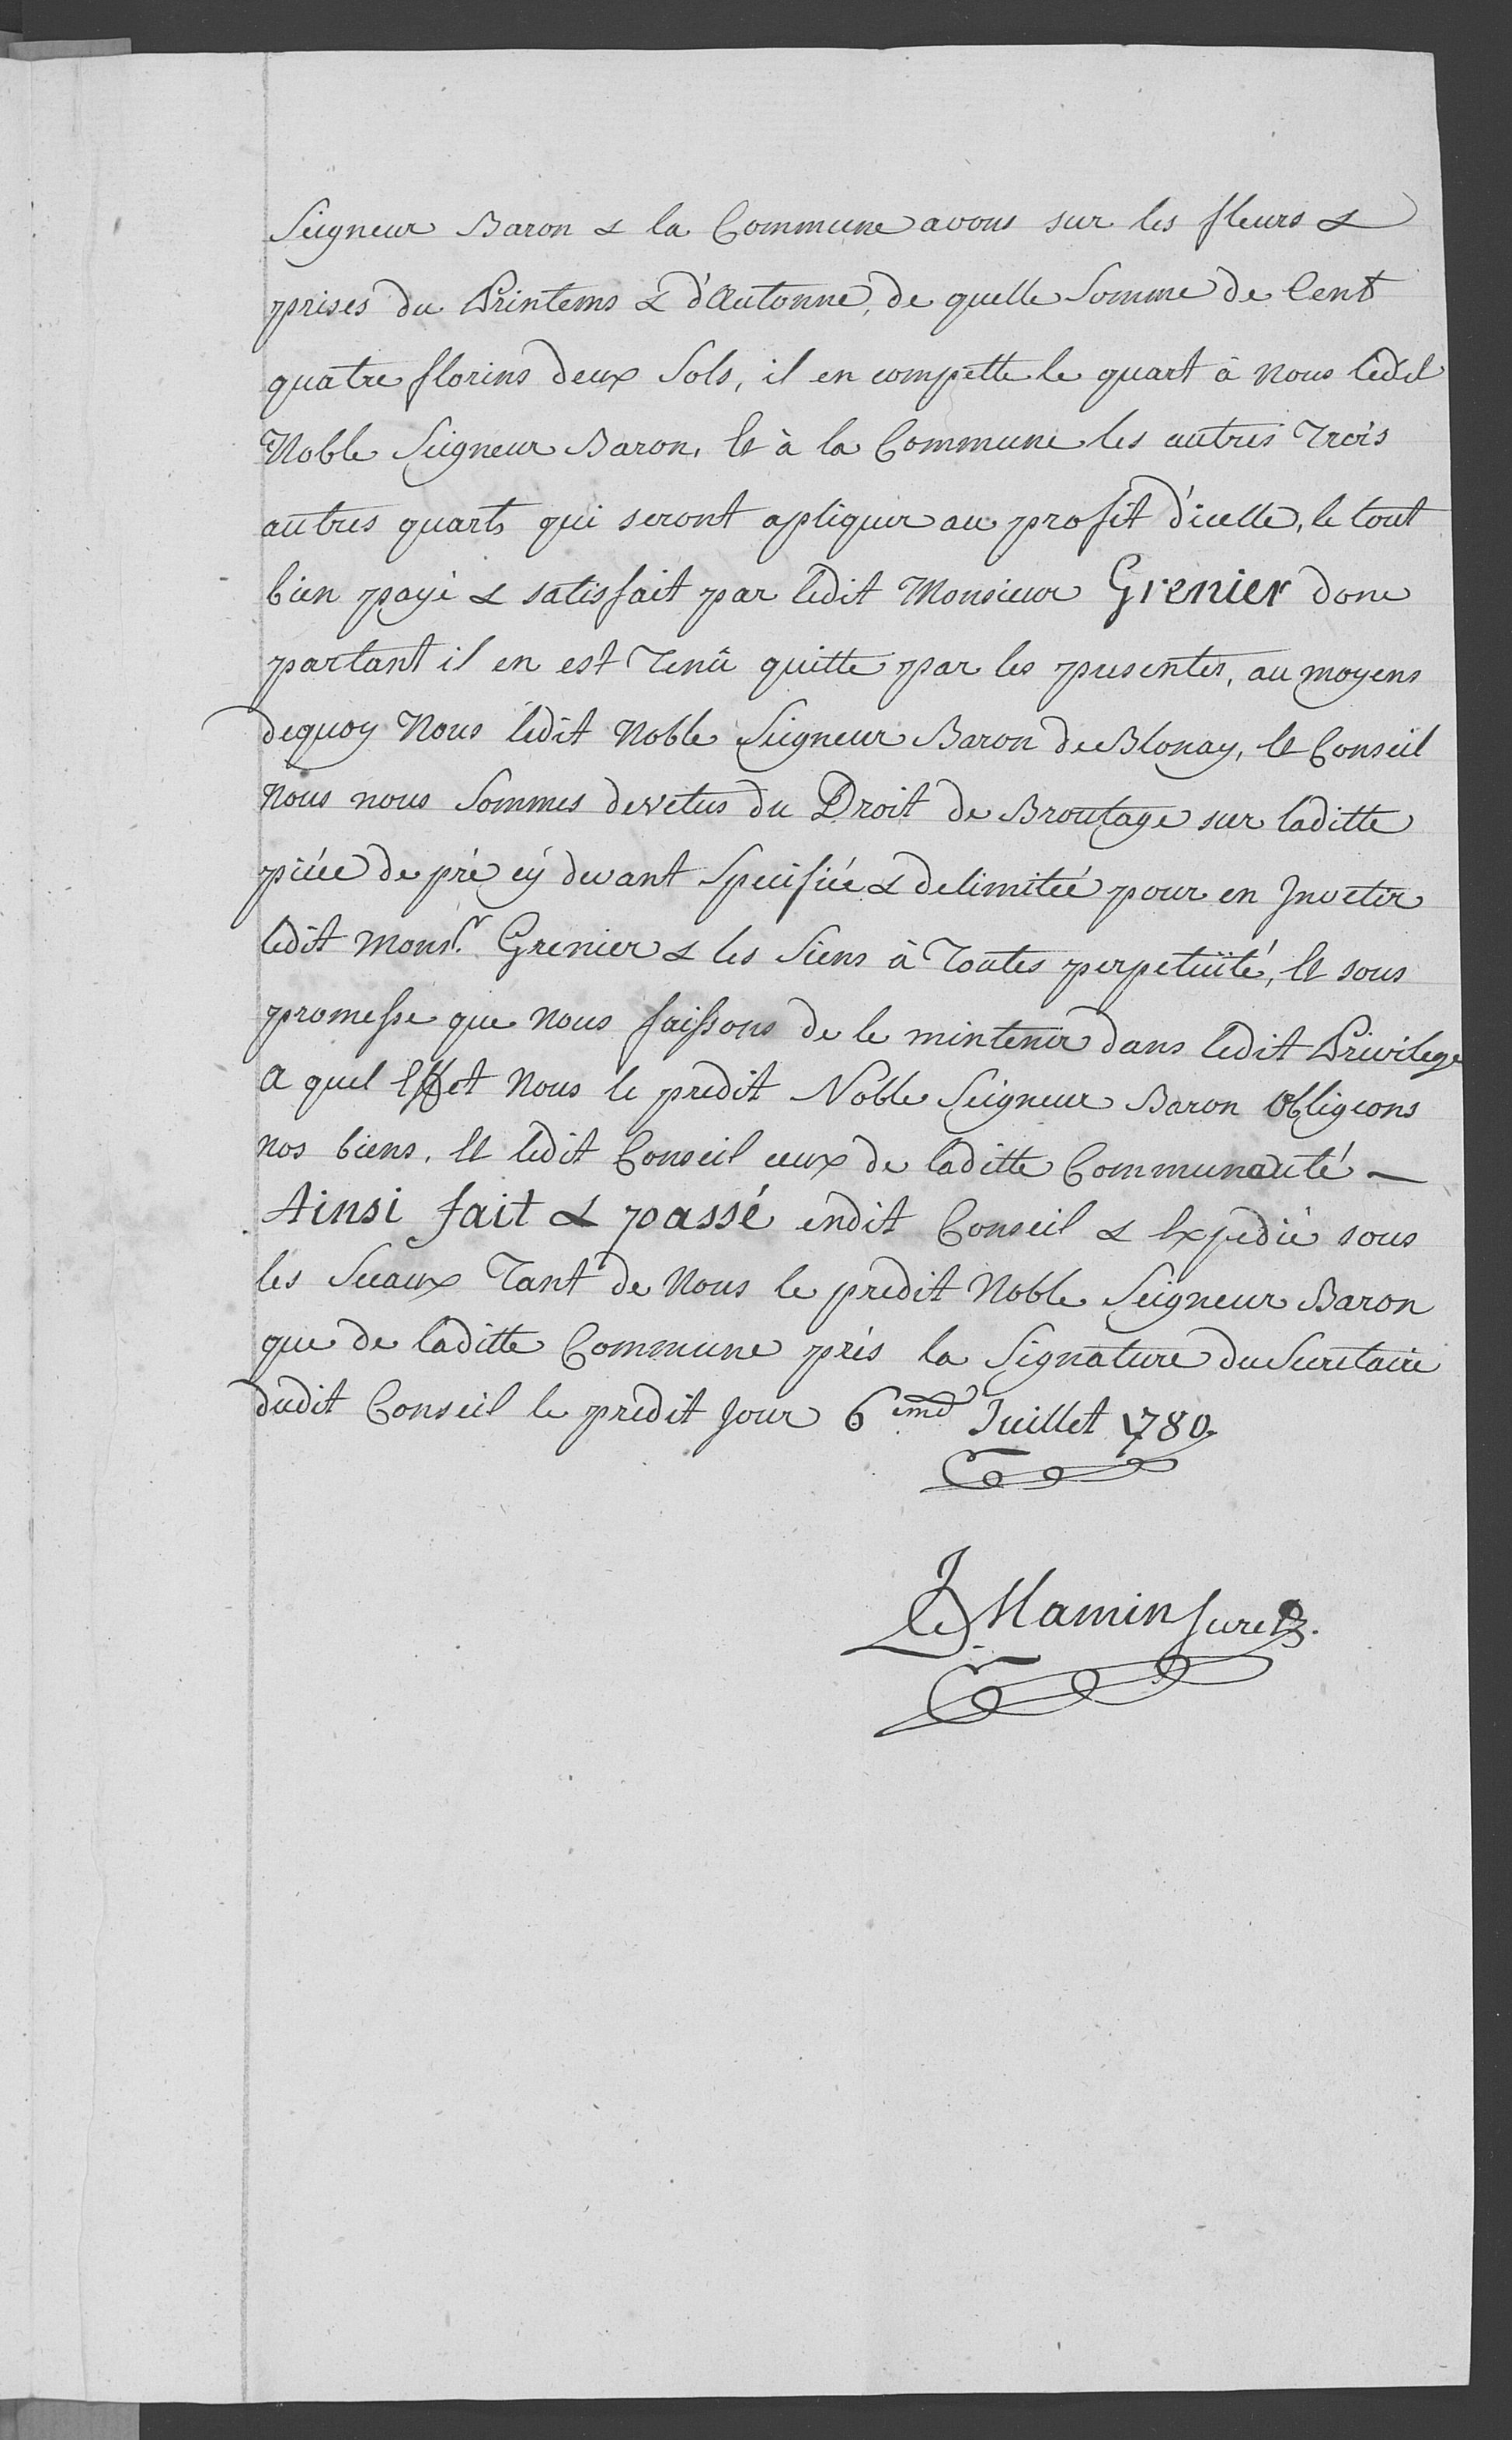 Seigneur Baron & la Commune avons sur les fleurs &
prises du Printems & d'Autonne, de quelle Somme de Cent
quatre florins deux Sols, il en compette le quart à nous ledit
Noble Seigneur Baron, Et à la Commune les autres Trois
autres quarts qui seront apliquer au profit d'icelle, le tout
bien payé & satisfait par ledit Monsieur Grenier donc
partant il en est Tenû quitte par les presentes, au moyens
dequoy Nous ledit Noble Seigneur Baron de Blonay, Et Conseil
Nous nous Sommes devetus du Droit de Broutage sur laditte
piéce de pré cÿ devant Specifiée & delimitée pour en Jnvetir
ledit Monsr. Grenier & les Siens à Toutes perpetuité, Et sous
promesse que nous faissons de le mintenir dans ledit Privilege
a quel Effet Nous le predit Noble Seigneur Baron Obligeons
nos biens, Et ledit Conseil ceux de laditte Communauté —
Ainsi fait & passé endit Conseil & Expedié sous
les Sceaux Tant de Nous le predit Noble Seigneur Baron
que de laditte Commune prés la Signature du Secretaire
dudit Conseil le predit Jour 6eme Juillet 1780.
Mamin Secret.